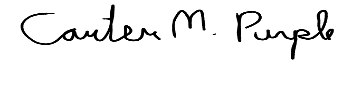 Carter M. Purple